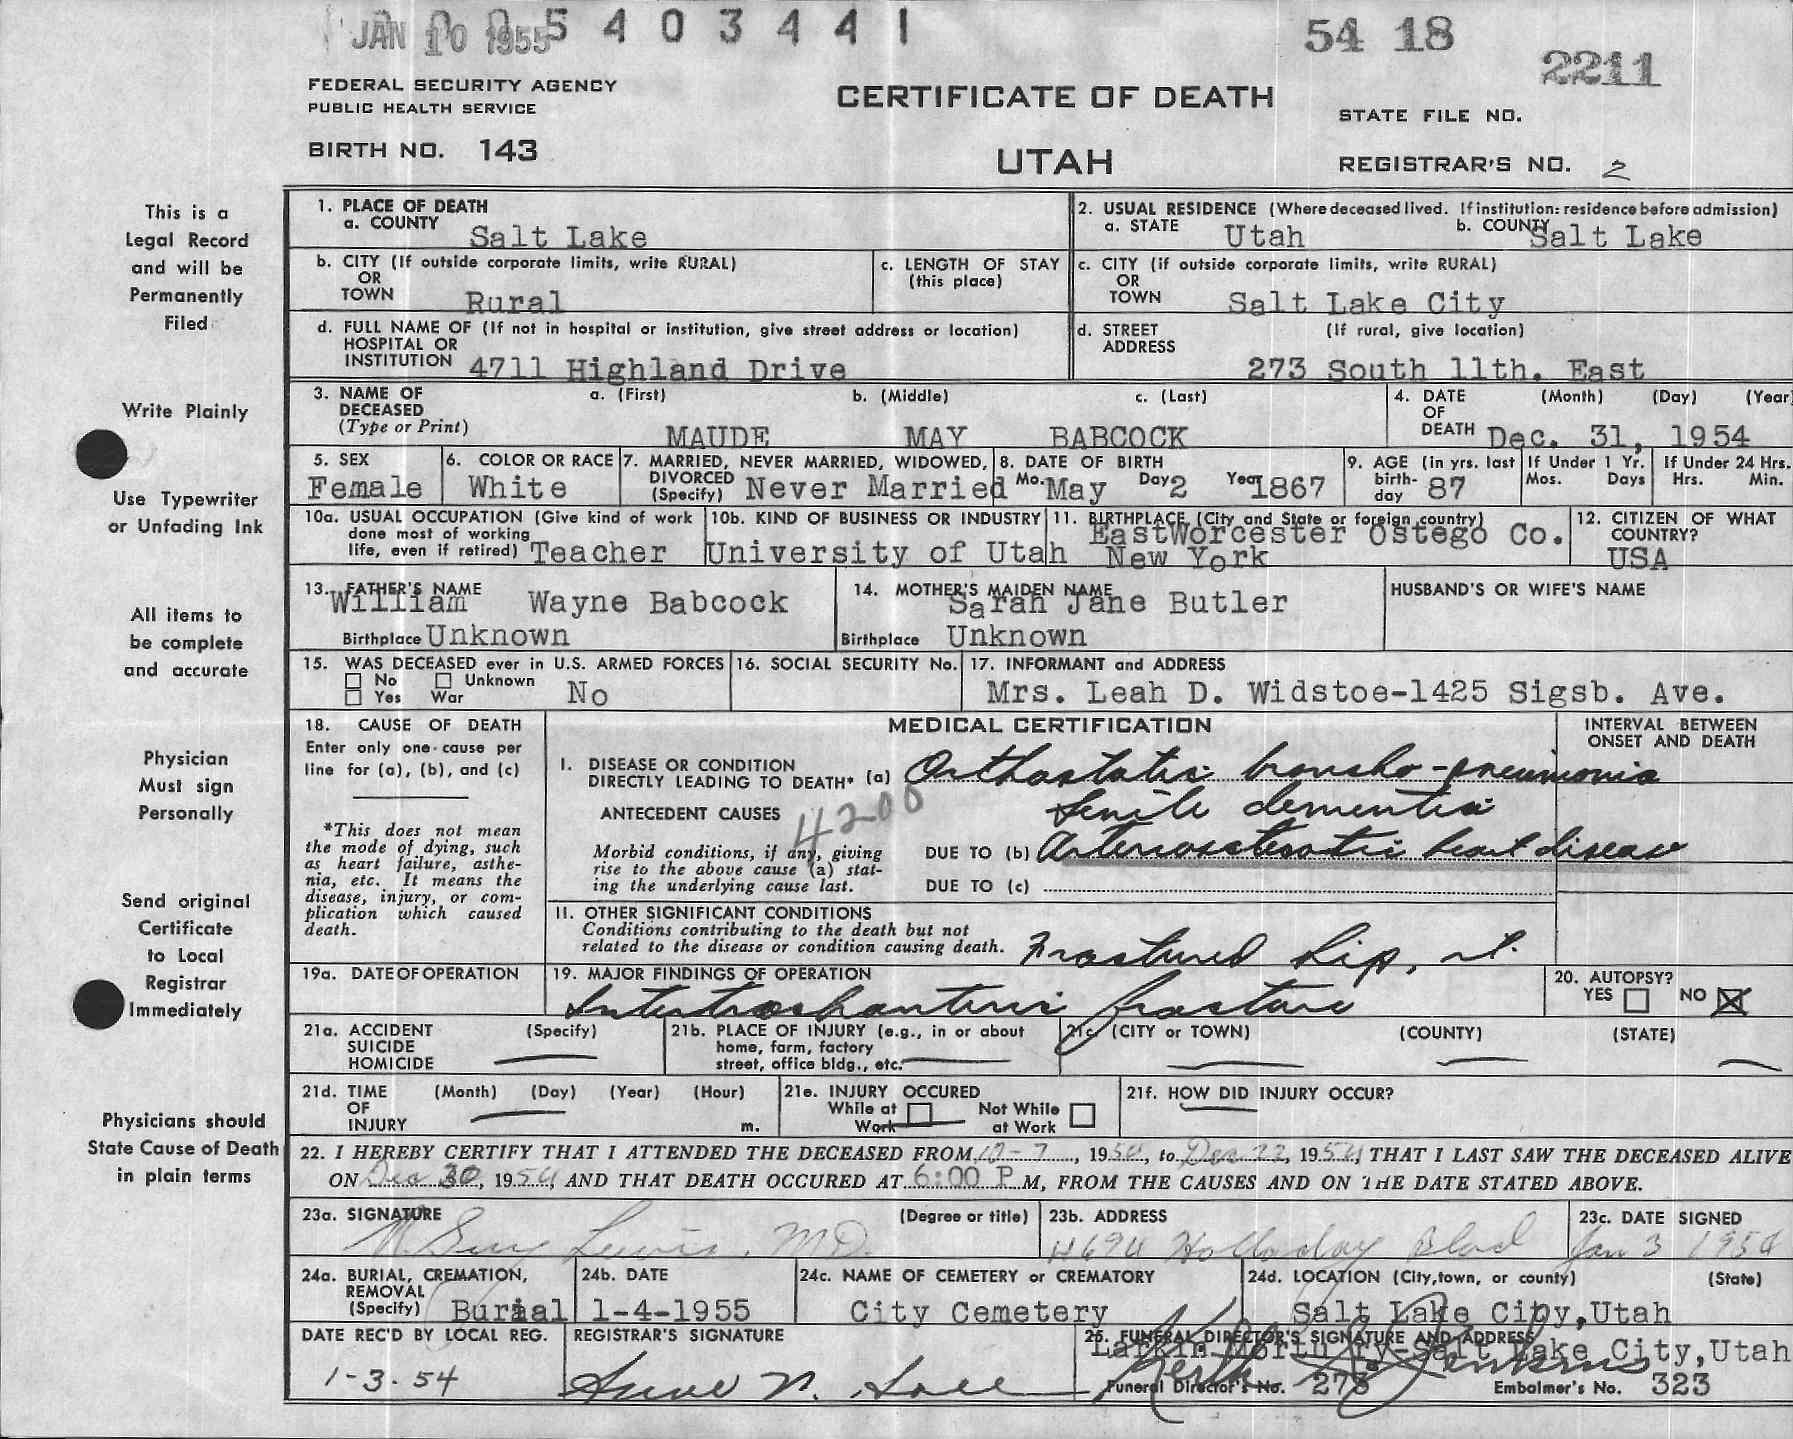 JAN 10 1955 5 4 0 3 4 4 1
54 18
2211
FEDERAL SECURITY AGENCY
PUBLIC HEALTH SERVICE
CERTIFICATE OF DEATH
STATE FILE NO.
BIRTH NO. 143
UTAH
REGISTRAR'S NO. 2
This is a
Legal Record
and will be
Permanently
Filed
Write Plainly
Use Typewriter
or Unfading Ink
All items to
be complete
and accurate
Physician
Must sign
Personally
Send original
Certificate
to Local
Registrar
Immediately
Physicians should
State Cause of Death
in plain terms
1. PLACE OF DEATH
a. COUNTY Salt Lake
2. USUAL RESIDENCE (Where deceased lived. If institution: residence before admission)
a. STATE Utah b. COUNTY Salt Lake
b. CITY (If outside corporate limits, write RURAL)
OR
TOWN Rural
c. LENGTH OF STAY
(this place)
c. CITY (if outside corporate limits, write RURAL)
OR
TOWN Salt Lake City
d. FULL NAME OF (If not in hospital or institution, give street address or location)
HOSPITAL OR
INSTITUTION 4711 Highland Drive
d. STREET (If rural, give location)
ADDRESS
273 South 11th. East
3. NAME OF a. (First) b. (Middle) c. (Last)
DECEASED
(Type or Print) MAUDE MAY BABCOCK
4. DATE (Month) (Day) (Year)
OF
DEATH Dec. 31, 1954
5. SEX
Female
6. COLOR OR RACE
White
7. MARRIED, NEVER MARRIED, WIDOWED,
DIVORCED
(Specify) Never Married
8. DATE OF BIRTH
Mo. May Day 2 Year 1867
9. AGE (in yrs. last
birth-
day 87
If Under 1 Yr.
Mos. Days
If Under 24 Hrs.
Hrs. Min.
10a. USUAL OCCUPATION (Give kind of work
done most of working
life, even if retired) Teacher
10b. KIND OF BUSINESS OR INDUSTRY
University of Utah
11. BIRTHPLACE (City and State or foreign country)
EastWorcester Ostego Co.
New York
12. CITIZEN OF WHAT
COUNTRY?
USA
13. FATHER'S NAME
William Wayne Babcock
Birthplace Unknown
14. MOTHER'S MAIDEN NAME
Sarah Jane Butler
Birthplace Unknown
HUSBAND'S OR WIFE'S NAME
15. WAS DECEASED ever in U.S. ARMED FORCES
No Unknown
Yes War No
16. SOCIAL SECURITY No.
17. INFORMANT and ADDRESS
Mrs. Leah D. Widstoe-1425 Sigsb. Ave.
18. CAUSE OF DEATH
Enter only one cause per
line for (a), (b), and (c)
*This does not mean
the mode of dying, such
as heart failure, asthe-
nia, etc. It means the
disease, injury, or com-
plication which caused
death.
MEDICAL CERTIFICATION
INTERVAL BETWEEN
ONSET AND DEATH
I. DISEASE OR CONDITION
DIRECTLY LEADING TO DEATH* (a) Orthostatic broncho-pneumonia
ANTECEDENT CAUSES 4200 Senile dementia
Morbid conditions, if any, giving
rise to the above cause (a) stat-
ing the underlying cause last.
DUE TO (b) Arteriosclerotic heart disease
DUE TO (c)
II. OTHER SIGNIFICANT CONDITIONS
Conditions contributing to the death but not
related to the disease or condition causing death. Fractured hip, rt.
19a. DATE OF OPERATION
19. MAJOR FINDINGS OF OPERATION
Intertrochanteric fracture
20. AUTOPSY?
YES NO
21a. ACCIDENT (Specify)
SUICIDE
HOMICIDE
21b. PLACE OF INJURY (e.g., in or about
home, farm, factory
street, office bldg., etc.
21c. (CITY or TOWN) (COUNTY) (STATE)
21d. TIME (Month) (Day) (Year) (Hour)
OF
INJURY m.
21e. INJURY OCCURED
While at Not While
Work at Work
21f. HOW DID INJURY OCCUR?
22. I HEREBY CERTIFY THAT I ATTENDED THE DECEASED FROM 12-7, 1954, to Dec 22, 1954, THAT I LAST SAW THE DECEASED ALIVE
ON Dec 30, 1954, AND THAT DEATH OCCURED AT 6:00 P M, FROM THE CAUSES AND ON THE DATE STATED ABOVE.
23a. SIGNATURE (Degree or title)
Lewis, MD.
23b. ADDRESS
4694 Holladay Blvd
23c. DATE SIGNED
Jan 3 1954
24a. BURIAL, CREMATION,
REMOVAL
(Specify) Burial
24b. DATE
1-4-1955
24c. NAME OF CEMETERY or CREMATORY
City Cemetery
24d. LOCATION (City, town, or county) (State)
Salt Lake City, Utah
DATE REC'D BY LOCAL REG.
1-3-54
REGISTRAR'S SIGNATURE
25. FUNERAL DIRECTOR'S SIGNATURE AND ADDRESS
Larkin Mortuary-Salt Lake City, Utah
Funeral Director's No. 273 Embalmer's No. 323